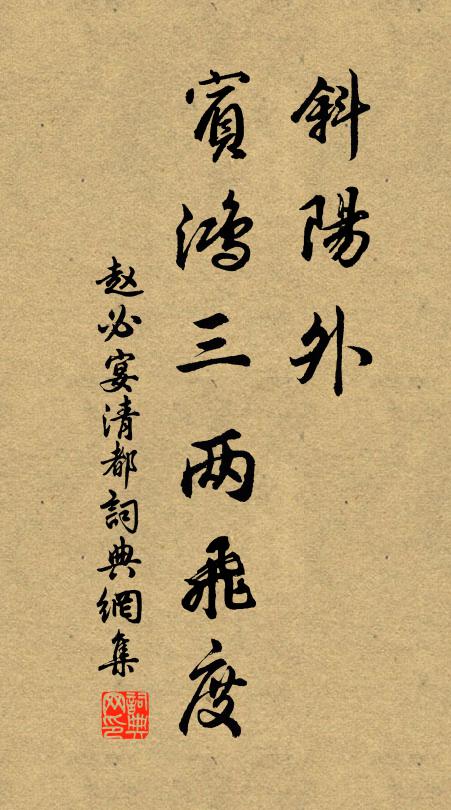 斜陽外
賓鴻三两飛度
赵必宴清都詞典網集
詞典网印